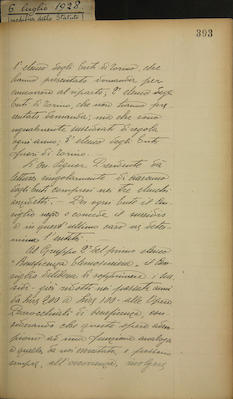 6 luglio 1928
(modifica dello Statuto)
393
l'elenco degli Enti di Torino, che
hanno presentato domanda per
concorrere al riparto; 2° elenco degli
Enti di Torino, che non hanno pre-
sentato domanda, ma che sono
ugualmente sussidiati di regola
ogni anno; 3° elenco degli Enti
fuori di Torino.
Il Signor Presidente dà
lettura singolarmente di ciascuno
degli Enti compresi nei tre elenchi
anzidetti. — Per ogni Ente il Con-
siglio nega o concede il sussidio
e in quest'ultimo caso ne deter-
mina l'entità.
Al Gruppo 2° del primo elenco
"Beneficenza Elemosiniera", il Con-
siglio delibera di sopprimere i sus-
sidi - già ridotti nei passati anni
da lire 200 a lire 100 - alle Opere
Parrocchiali di beneficenza, con-
siderando che queste opere adem-
piono ad una funzione analoga
a quella da noi esercitata e possono
sempre, all'occorrenza, rivolgersi